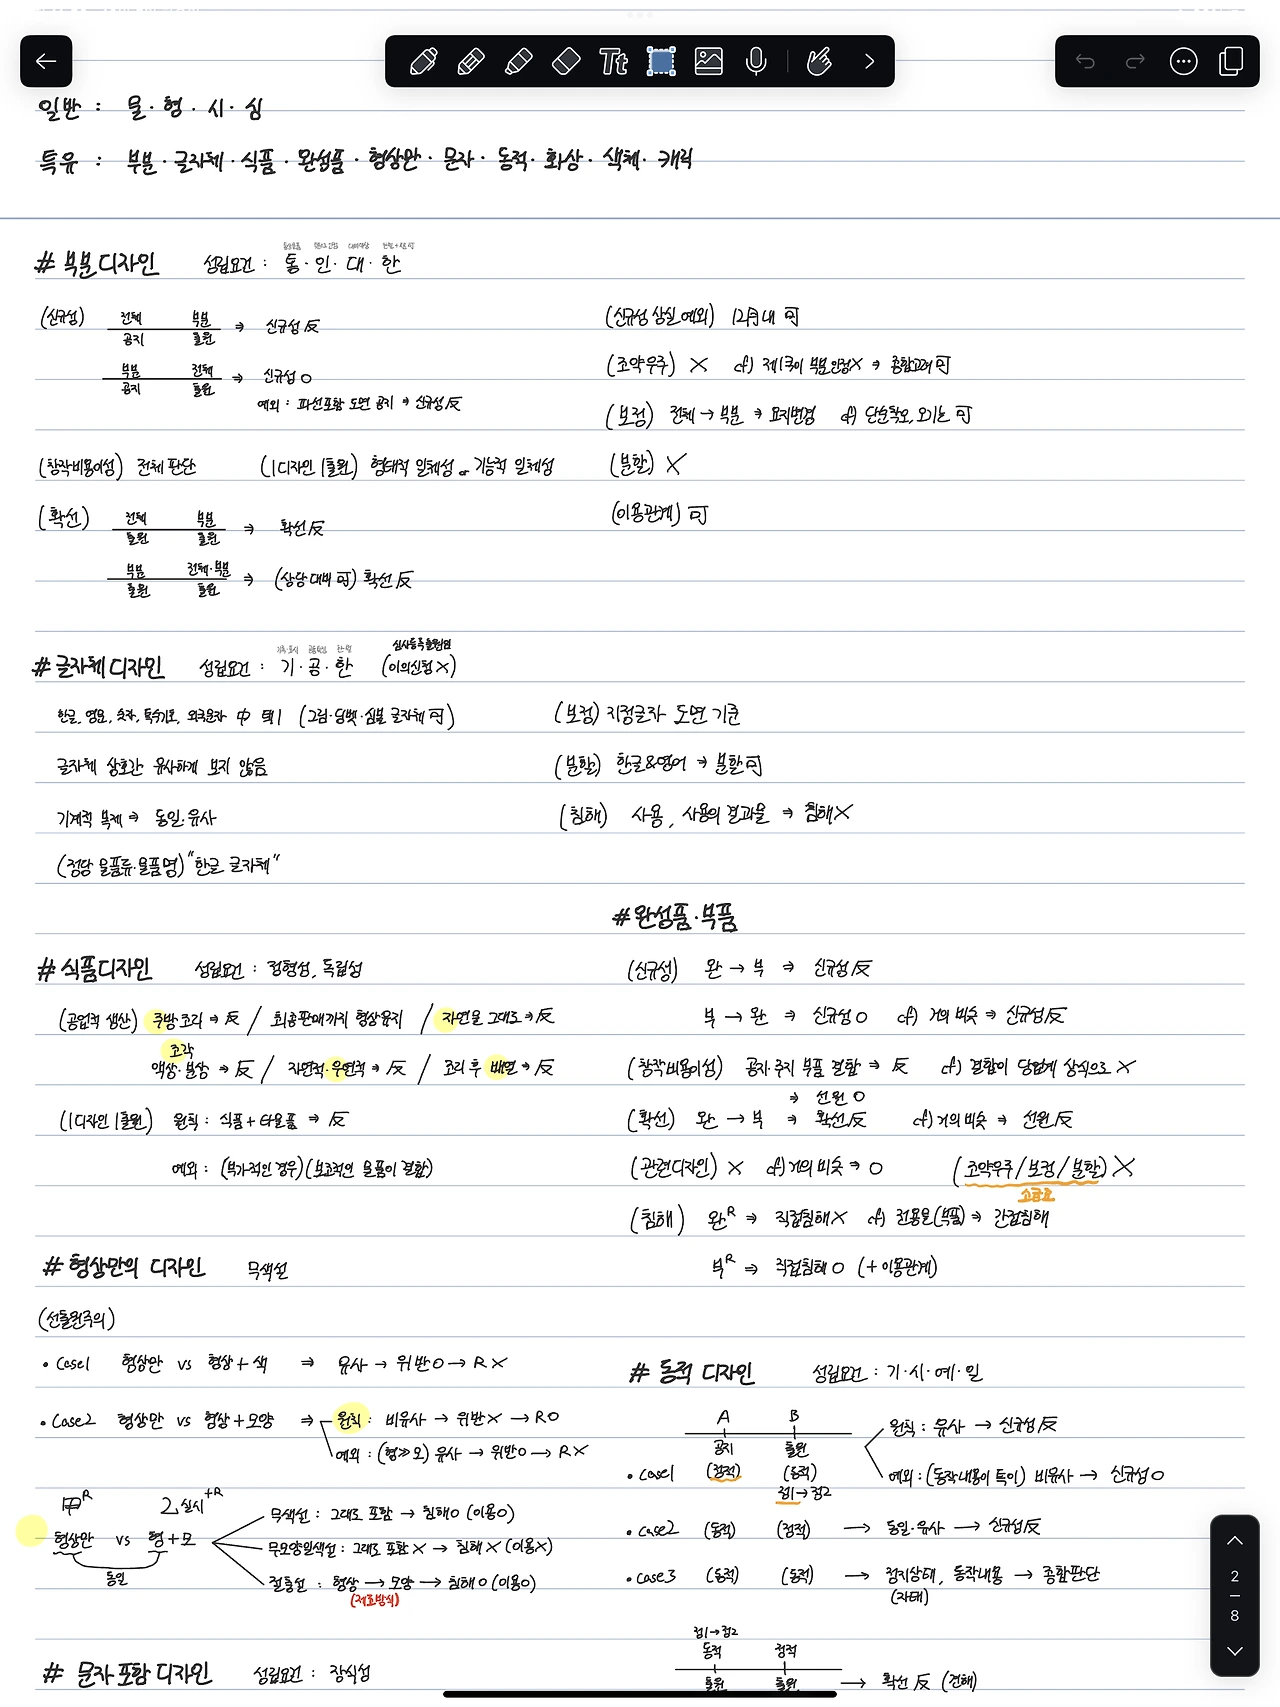 Tt
일반 : 물·형·시·심
특유 : 부분·글자체·식품·완성품·형상만·문자·동적·화상·색채·캐릭
# 부분디자인 성립요건 : 통·인·대·한
(신규성) 전체 부분 ⇒ 신규성 反
공지 출원
부분 전체 ⇒ 신규성 O
공지 출원
예외 : 파선포함 도면 공지 ⇒ 신규성 反
(창작비용이성) 전체 판단 (1디자인 1출원) 형태적 일체성 or 기능적 일체성
(확선) 전체 부분 ⇒ 확선 反
출원 출원
부분 전체·부분 ⇒ (상당 대비 可) 확선 反
출원 출원
(신규성 상실 예외) 12月내 可
(조약우주) X cf) 제1국이 부분 인정X ⇒ 종합고려 可
(보정) 전체 → 부분 ⇒ 요지변경 cf) 단순착오, 오기는 可
(분할) X
(이용관계) 可
# 글자체 디자인 성립요건 : 기·공·한 (이의신청 X)
심사등록출원임
한글, 영어, 숫자, 특수기호, 외국문자 中 택1 (그림·딩벳·심볼 글자체 可)
글자체 상호간 유사하게 보지 않음
기계적 복제 ⇒ 동일·유사
(정당 물품류·물품명) "한글 글자체"
(보정) 지정글자 도면 기준
(분할) 한글&영어 ⇒ 분할 可
(침해) 사용, 사용의 결과물 ⇒ 침해X
# 식품디자인 성립요건 : 정형성, 독립성
(공업적 생산) 주방 조리 → 反 / 최종판매까지 형상유지 / 자연물 그대로 → 反
조각
액상·분상 → 反 / 자연적·우연적 → 反 / 조리 후 배열 → 反
(1디자인 1출원) 원칙 : 식품 + 타물품 ⇒ 反
예외 : (부가적인 경우)(보조적인 물품이 결합)
# 완성품·부품
(신규성) 완 → 부 ⇒ 신규성 反
부 → 완 ⇒ 신규성 O cf) 거의 비슷 ⇒ 신규성 反
(창작비용이성) 공지·주지 부품 결합 ⇒ 反 cf) 결합이 당업계 상식으로 X
⇒ 선원 O
(확선) 완 → 부 ⇒ 확선 反 cf) 거의 비슷 ⇒ 선원 反
(관련디자인) X cf) 거의 비슷 ⇒ O (조약우주/보정/분할) X
(침해) 완R ⇒ 직접침해X cf) 전용물(부품) ⇒ 간접침해
부R ⇒ 직접침해 O (+이용관계)
# 형상만의 디자인 무색선
(선출원주의)
• Case1 형상만 vs 형상 + 색 ⇒ 유사 → 위반 O → R X
• Case2 형상만 vs 형상 + 모양 ⇒ 원칙 : 비유사 → 위반 X → R O
예외 : (형≫모) 유사 → 위반O → R X
甲R 乙실시+R
형상만 vs 형+모
동일
무색선 : 그대로 포함 → 침해O (이용O)
무모양일색선 : 그대로 포함 X → 침해 X (이용X)
절충설 : 형상 → 모양 → 침해 O (이용O)
(제조방식)
# 동적 디자인 성립요건 : 기·시·예·일
A B
공지 출원
• Case1 (정적) (동적)
정1 → 정2
원칙 : 유사 → 신규성 反
예외 : (동작내용이 특이) 비유사 → 신규성 O
• Case2 (동적) (정적) → 동일·유사 → 신규성 反
• Case3 (동적) (동적) → 정지상태, 동작내용 → 종합판단
(자태)
정1 → 정2
동적 정적
출원 출원 → 확선 反 (견해)
# 문자 포함 디자인 성립요건 : 장식성
2
8